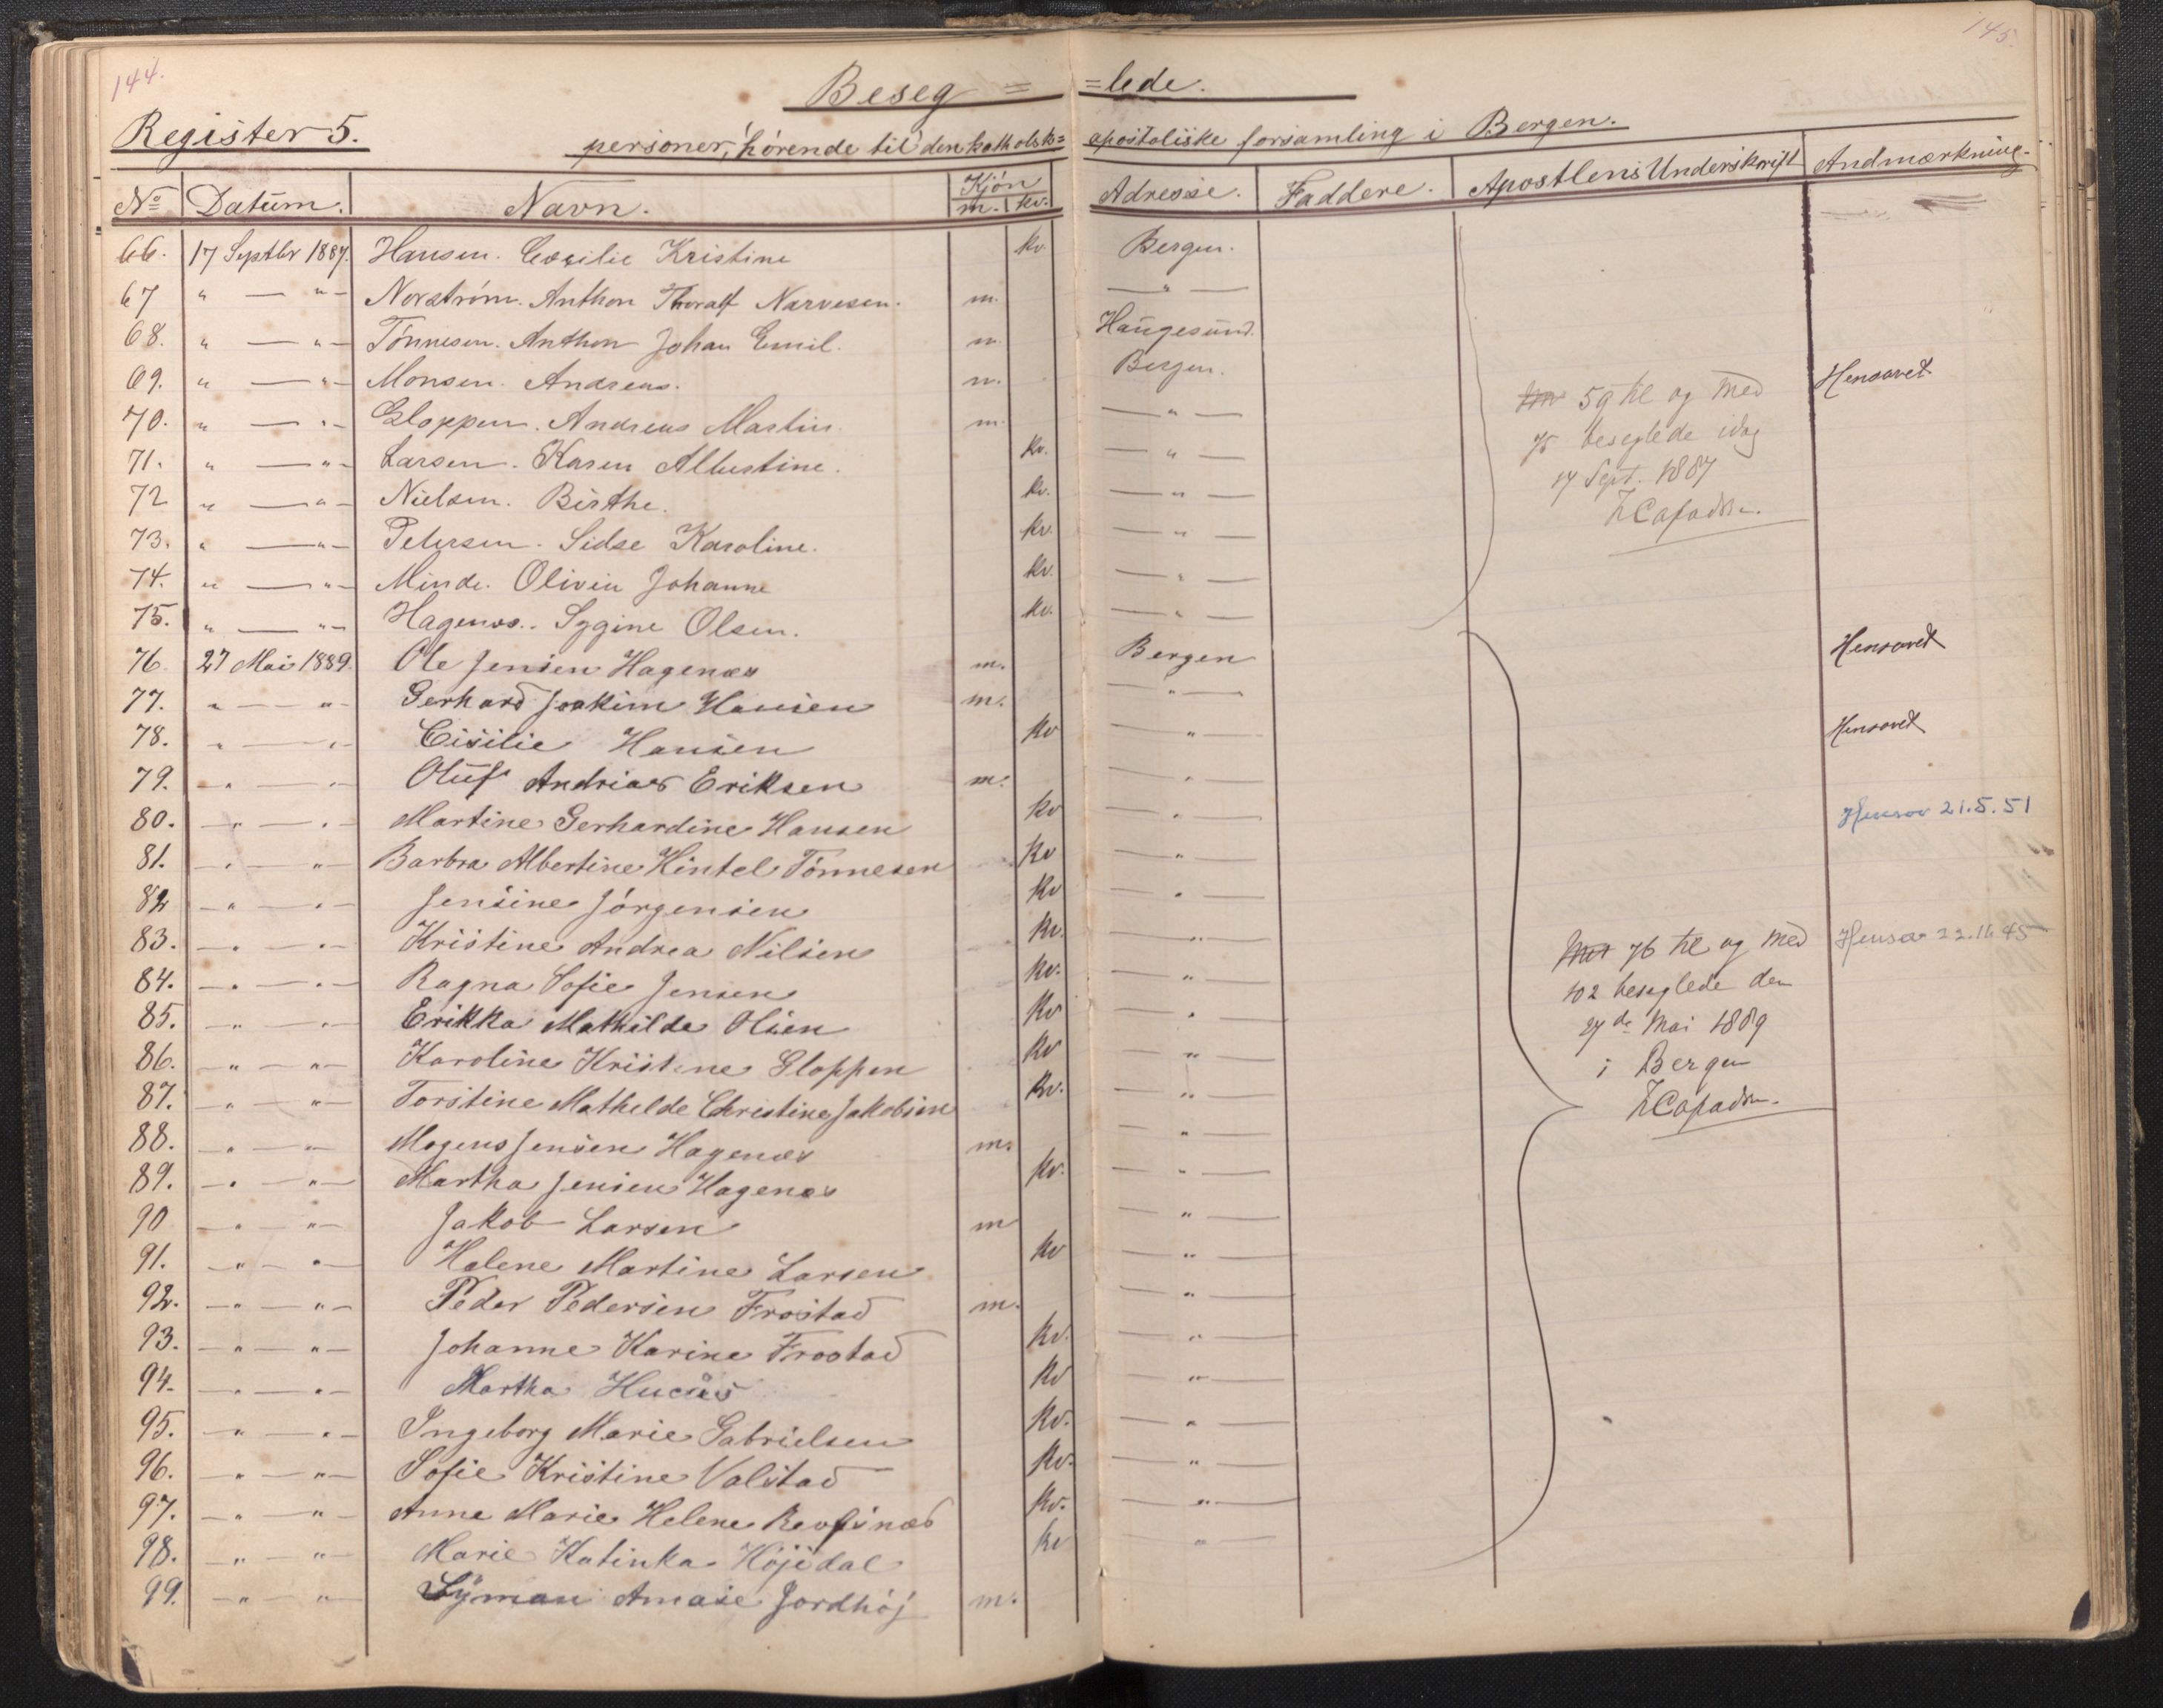 144.
145.
Beseg = =lede.
Register 5. personer, hørende til den katholsk= apostoliske forsamling i Bergen.
No Datum. Navn. Kjön m. kv. Adresse. Faddere. Apostlens Underskrift Andmærkning.
66. 17 Septbr 1887. Hansen. Cecilie Kristine kv. Bergen.
67 " — " — Norström. Anthon Thoralf Narvesen. m. — " —
68. " — " — Tönnesen. Anthon Johan Emil. m. Haugesund.
69. " — " — Monsen. Andreas. m. Bergen. Hensovet
70. " — " — Gloppen. Andreas Martin. m. — " —
71. " — " — Larsen. Karen Albertine. kv. — " —
72 " — " — Nielsen. Birthe. kv. — " —
73. " — " — Petersen. Sidse Karoline. kv. — " —
74. " — " — Minde. Olivia Johanne kv. — " —
75. " — " — Hagenæs. Sygine Olsen. kv. — " —
59 til og med
75 beseglede idag
17 Sept. 1887
76. 27 Mai 1889. Ole Jensen Hagenæs m. Bergen Hensovet
77. " — " — Gerhard Joakim Hansen m. — " —
78. " — " — Cisilie Hansen kv — " — Hensovet
79. — " — " — Oluf Andrias Eriksen m. — " —
80. — " — " — Martine Gerhardine Hansen kv — " — Hensov 21.5.51
81. — " — " — Barbra Albertine Hintel Tönnesen kv — " —
82 — " — " — Jensine Jörgensen kv — " —
83. — " — " — Kristine Andrea Nilsen kv. — " — Hensov 22.11.45
84. — " — " — Ragna Sofie Jensen kv. — " —
85. — " — " — Erikka Mathilde Olsen kv — " —
86. — " — " — Karoline Kristine Gloppen kv — " —
87. — " — " — Torstine Mathilde Christine Jakobsen kv. — " —
88. — " — " — Mogens Jensen Hagenæs m. — " —
89. — " — " — Martha Jensen Hagenæs kv. — " —
90 — " — " — Jakob Larsen m — " —
91. — " — " — Halene Martine Larsen kv — " —
92. — " — " — Peder Pedersen Frostad m. — " —
93. — " — " — Johanne Karine Frostad kv. — " —
94. — " — " — Martha kv — " —
95. — " — " — Ingeborg Marie Gabrielsen kv. — " —
96. — " — " — Sofie Kristine Valstad kv. — " —
97. — " — " — Anne Marie Helene kv. — " —
98. — " — " — Marie Katinka Höjdal kv — " —
99. — " — " — Lyman Amasé Jordhöj m.
76 til og med
102 beseglede den
27de Mai 1889
i Bergen